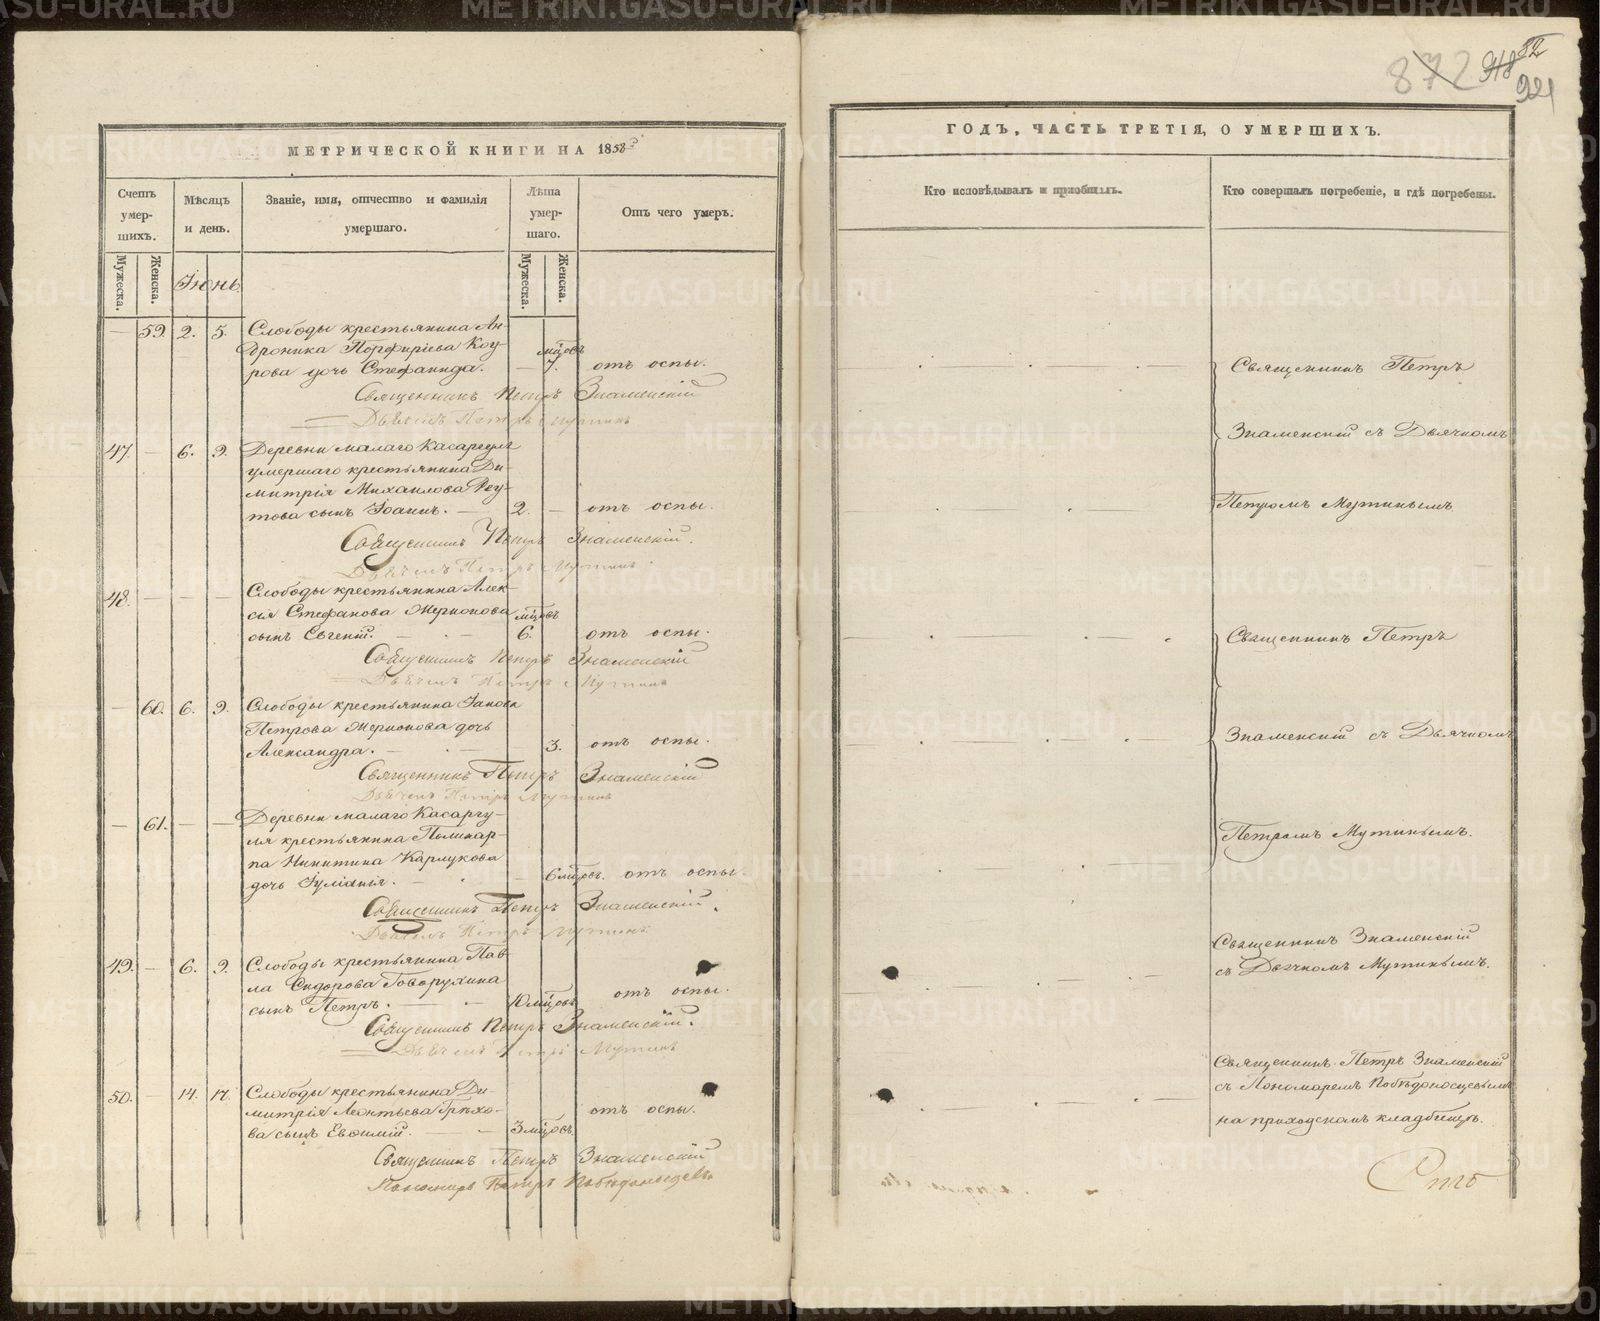 МЕТРИЧЕСКОЙ КНИГИ НА 1858й
Счетъ умер-шихъ.
Мѣсяцъ и день.
Званіе, имя, отчество и фамилія умершаго.
Лѣта умер-шаго.
Отъ чего умеръ.
Мужеска.
Женска.
Іюнь
Мужеска.
Женска.
59. 2. 5. Слободы крестьянина Ан-
дроника Порфиріева Коу-
рова дочь Стефанида. — 7. мцовъ отъ оспы.
Священникъ Петръ Знаменскій
Дьячекъ Петръ Мутинъ
47. — 6. 9. Деревни малаго Касаргуля
умершаго крестьянина Ди-
митрія Михаилова Реу-
това сынъ Іоаннъ. — 2. — отъ оспы.
Священникъ Петръ Знаменскій.
Дьячекъ Петръ Мутинъ
48. — — — Слободы крестьянина Алек-
сія Стефанова Жернокова мцовъ
сынъ Евгеній. — 6. отъ оспы.
Священникъ Петръ Знаменскій
Дьячекъ Петръ Мутинъ
— 60. 6. 9. Слободы крестьянина Іакова
Петрова Жернокова дочь
Александра. — 3. отъ оспы.
Священникъ Петръ Знаменскій
Дьячекъ Петръ Мутинъ
— 61. — — Деревни малаго Касаргу-
ля крестьянина Поликар-
па Никитина Карлукова
дочь Іуліанія. — 6 мцовъ. отъ оспы.
Священникъ Петръ Знаменскій.
Дьячекъ Петръ Мутинъ
49. — 6. 9. Слободы крестьянина Пав-
ла Сидорова Говорухина
сынъ Петръ. — 10 мцовъ отъ оспы.
Священникъ Петръ Знаменскій.
Дьячекъ Петръ Мутинъ
50. — 14. 17. Слободы крестьянина Ди-
митрія Леонтьева Грѣхо-
ва сынъ Евфимій. — 3 мцовъ. отъ оспы.
Священникъ Петръ Знаменскій
Пономарь Петръ Побѣдоносцевъ
872
921
ГОДЪ, ЧАСТЬ ТРЕТІЯ, О УМЕРШИХЪ.
Кто исповѣдывалъ и пріобщалъ.
Кто совершалъ погребеніе, и гдѣ погребены.
Священникъ Петръ
Знаменскій съ Дьячкомъ
Петромъ Мутинымъ
Священникъ Петръ
Знаменскій съ Дьячкомъ
Петромъ Мутинымъ.
Священникъ Знаменскій
съ Дьячкомъ Мутинымъ.
Священникъ Петръ Знаменскій
съ Пономаремъ Побѣдоносцевымъ
на приходскомъ кладбищѣ.
METRIKI.GASO-URAL.RU